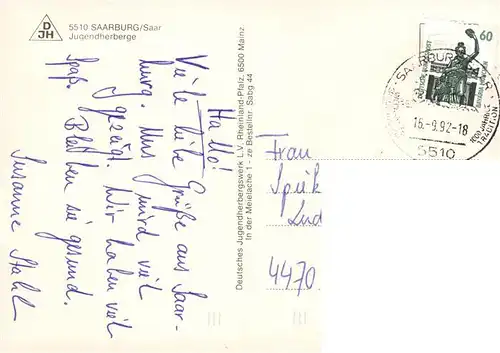 DJH
5510 SAARBURG/Saar
Jugendherberge
Hallo!
Viele liebe Grüße aus Saar-
burg. Uns wird viel
gezeigt. Wir haben viel
Spaß. Bleiben sie gesund.
Susanne Stahl
Deutsches Jugendherbergswerk L.V. Rheinland-Pfalz, 6500 Mainz
In der Meielache 1 - ze Bestellnr. Sabg 44
60
SAARBURG
16.-9.92-18
5510
TRADITION
Frau
4470